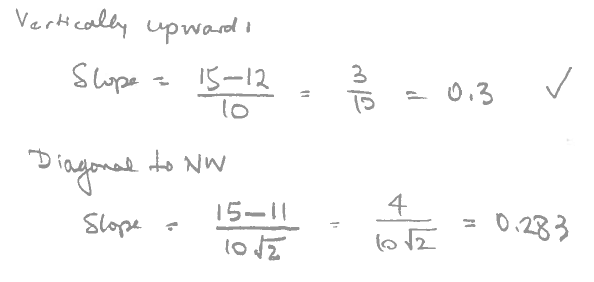 Vertically upward:
Slope = 15-12/10 = 3/10 = 0.3 ✓
Diagonal to NW
Slope = 15-11/10√2 = 4/10√2 = 0.283